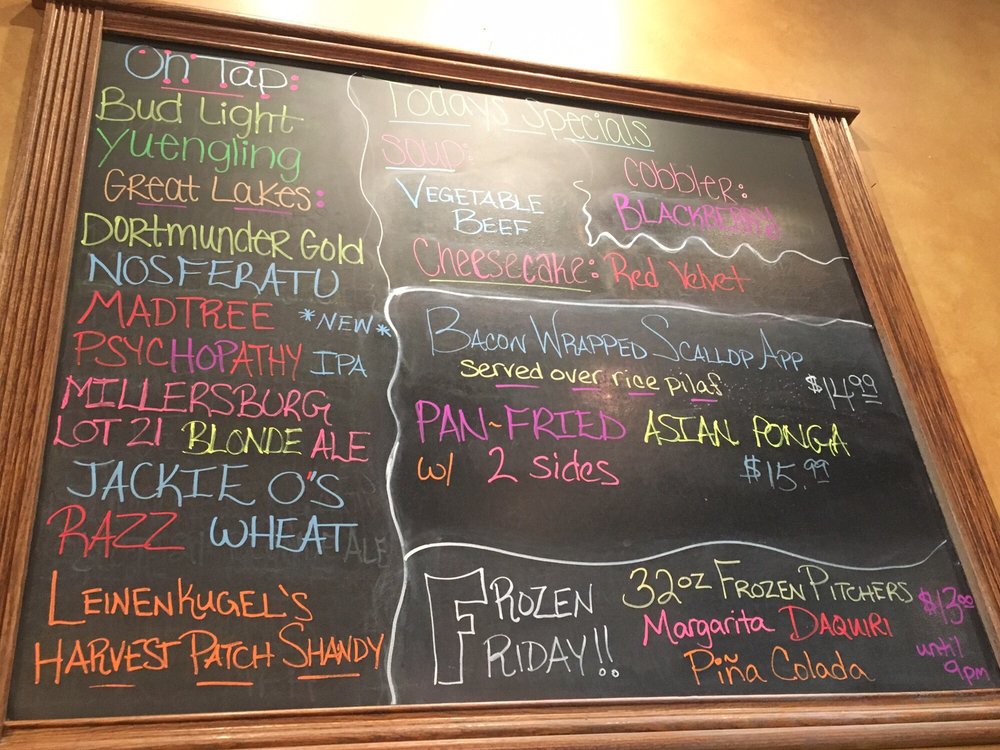 On Tap:
Bud Light
Yuengling
Great Lakes:
Dortmunder Gold
NOSFERATU
MADTREE *NEW*
PSYCHOPATHY IPA
MILLERSBURG
LOT 21 BLONDE ALE
JACKIE O"S
RAZZ WHEAT
ALE
LEINENKUGEL'S
HARVEST PATCH SHANDY
Todays Specials
Soup:
VEGETABLE
BEEF
Cobbler:
BLACKBERRY!
Cheesecake: Red Velvet
BACON WRAPPED SCALLOP APP
served over rice pilaf $14.99
PAN-FRIED ASIAN PONGA
w/ 2 sides $15.99
FROZEN
FRIDAY!!
32oz FROZEN PITCHERS
Margarita DAQUIRI
Piña Colada
$13.00
until
9pm